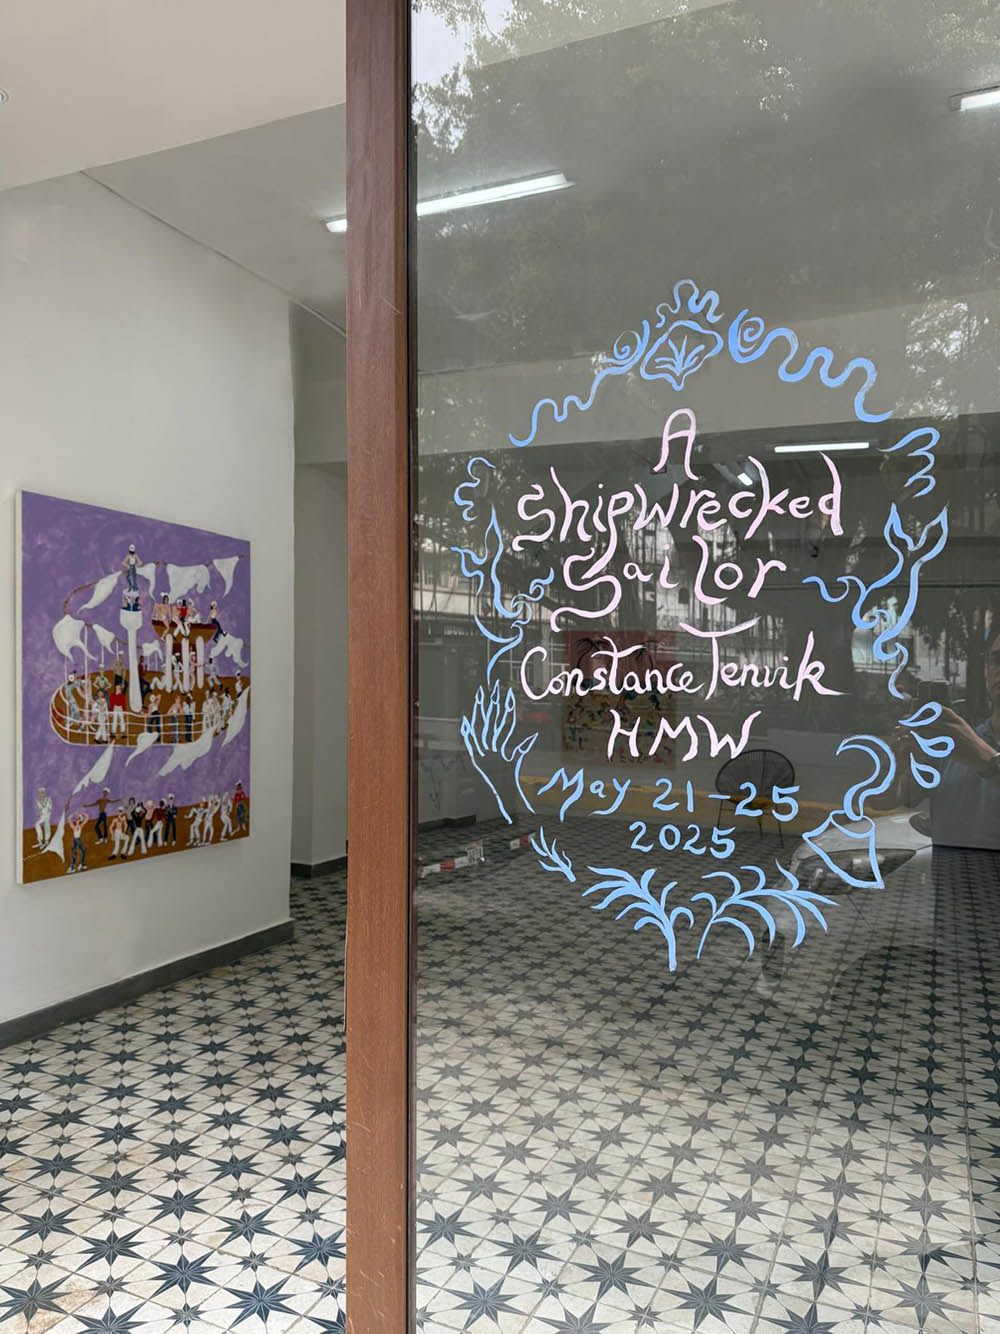 A
Shipwrecked
Sailor
Constance Tenvik
HMW
May 21-25
2025